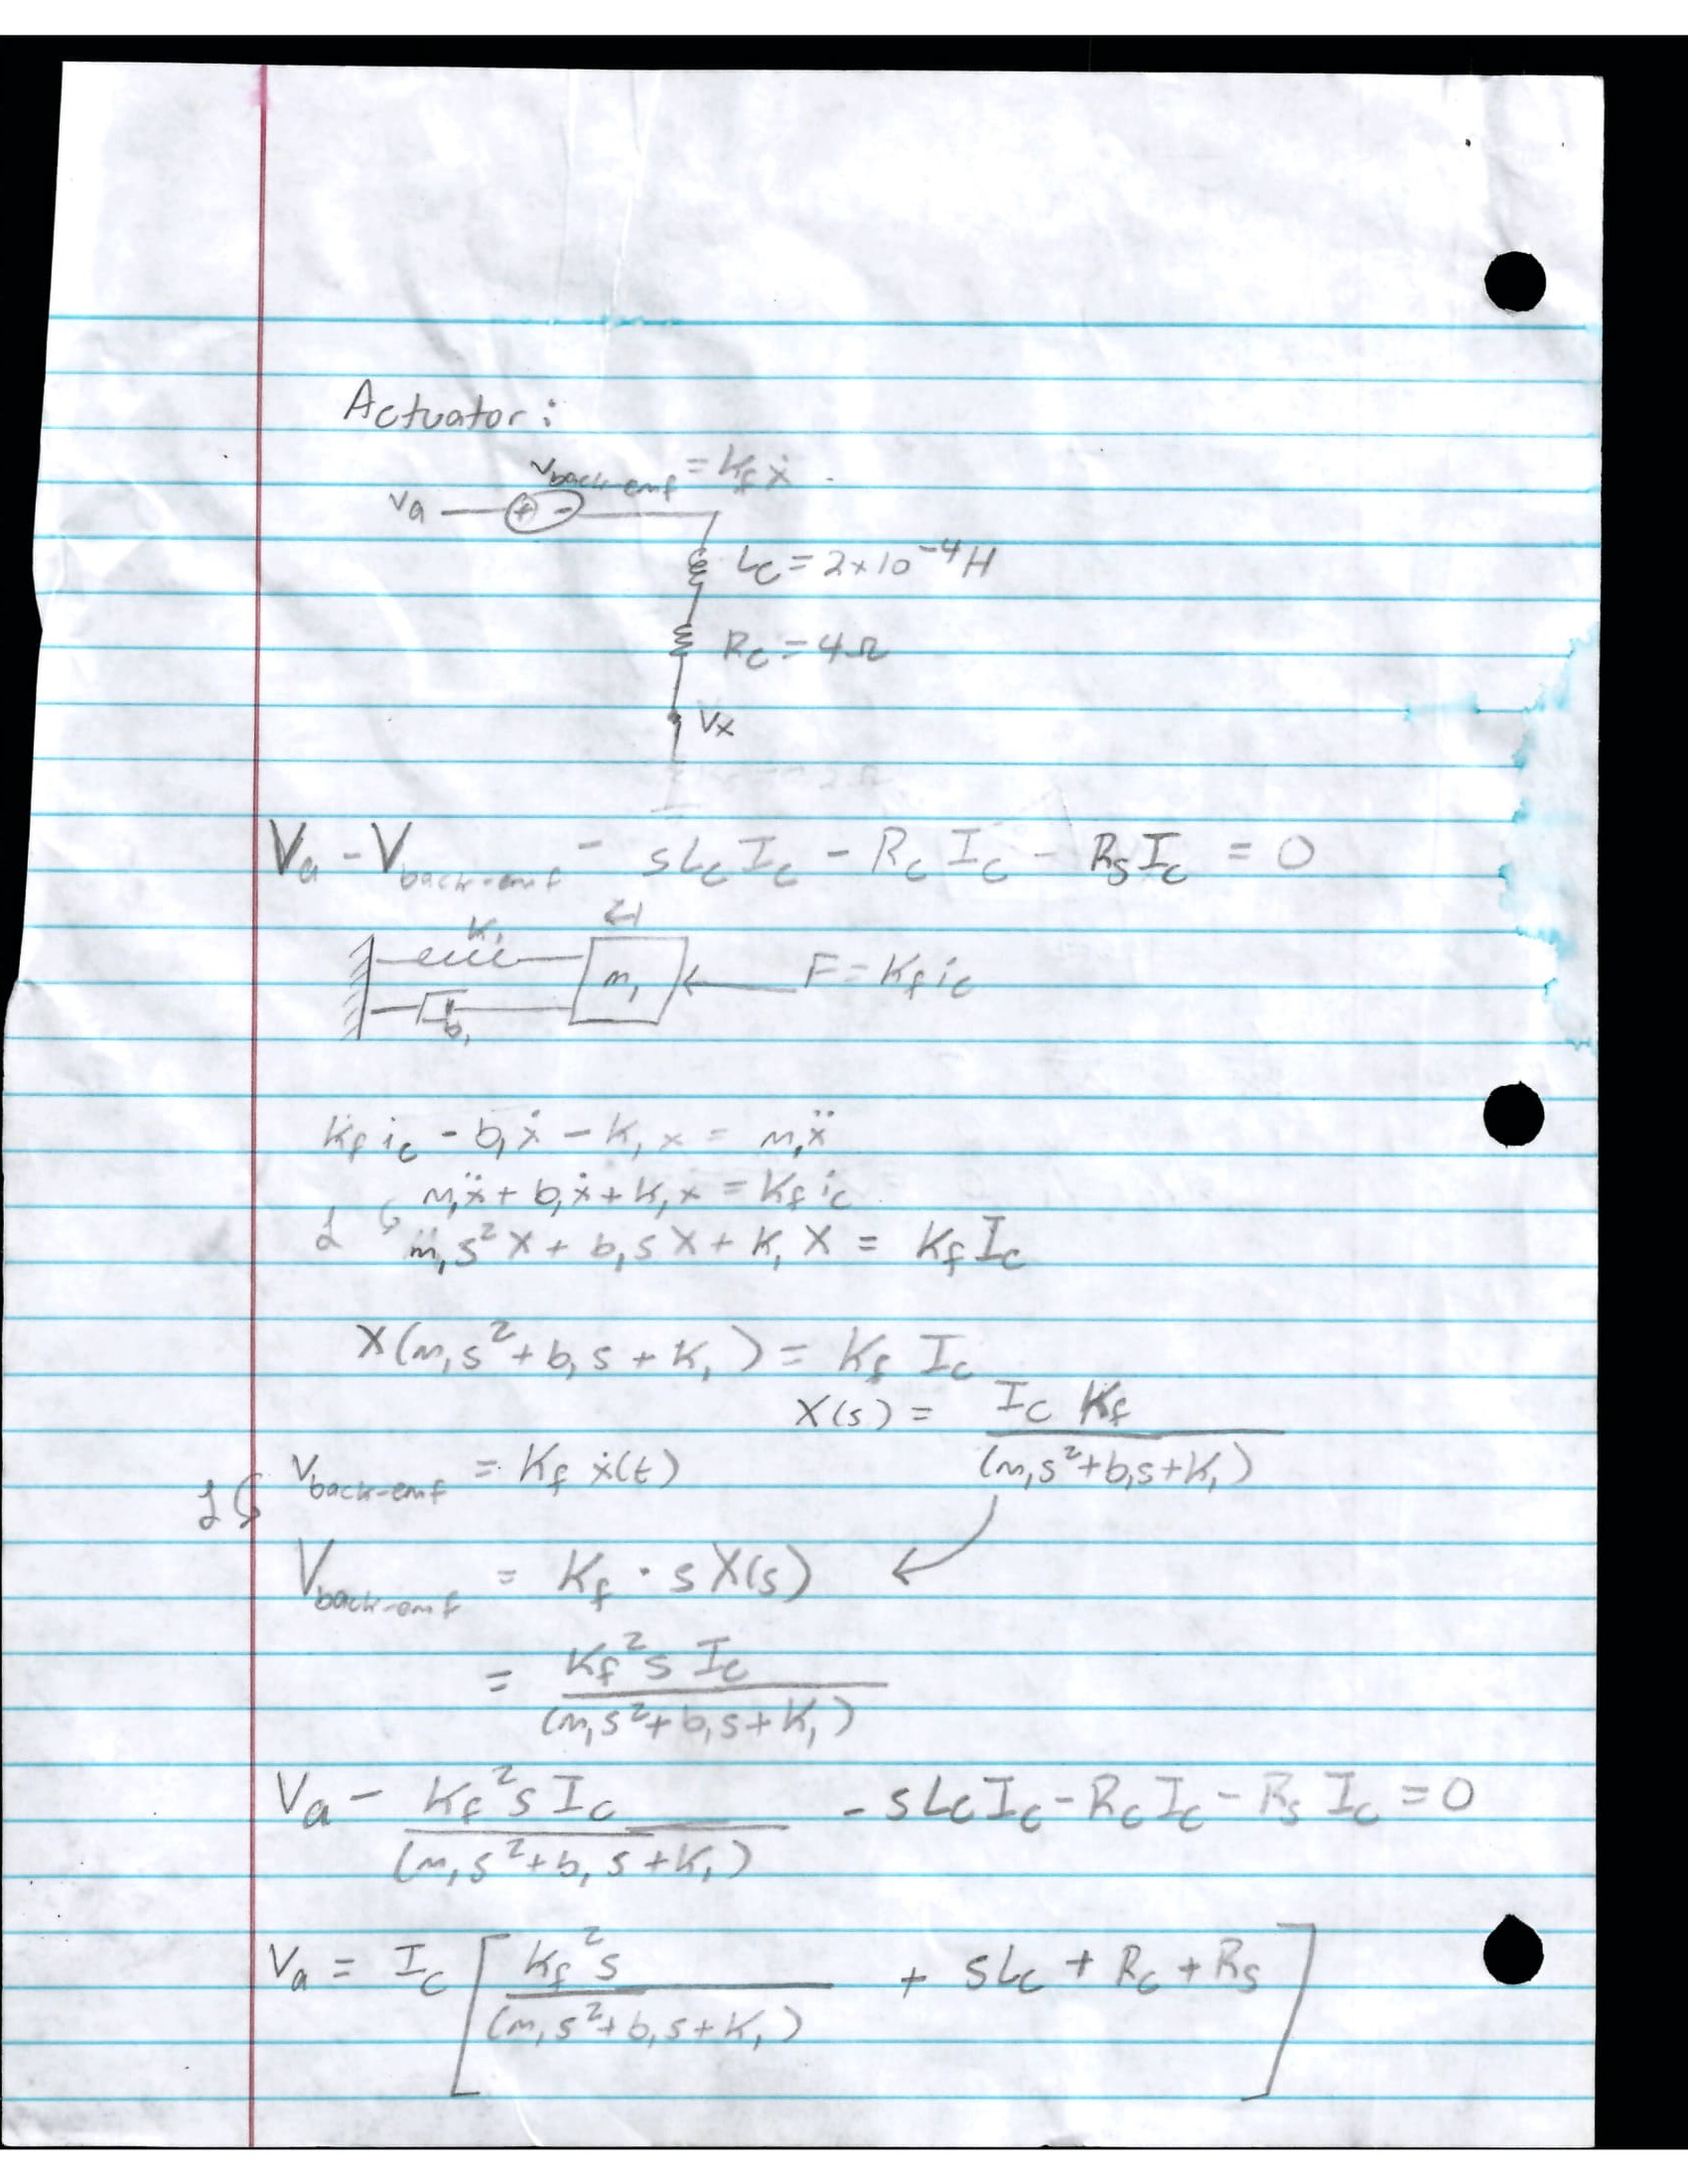 Actuator:
v_back-emf = K_f ẋ
va + -
L_c = 2×10^-4 H
R_c = 4Ω
Vx
2Ω
V_a - V_back-emf - sL_c I_c - R_c I_c - R_s I_c = 0
K_1
m_1 F = K_f i_c
b_1
K_f i_c - b_1 ẋ - K_1 x = m_1 ẍ
m_1 ẍ + b_1 ẋ + K_1 x = K_f i_c
ℒ m_1 s^2 X + b_1 s X + K_1 X = K_f I_c
X(m_1 s^2 + b_1 s + K_1) = K_f I_c
X(s) = I_c K_f / (m_1 s^2 + b_1 s + K_1)
ℒ v_back-emf = K_f ẋ(t)
V_back-emf = K_f · s X(s)
= K_f^2 s I_c / (m_1 s^2 + b_1 s + K_1)
V_a - K_f^2 s I_c / (m_1 s^2 + b_1 s + K_1) - sL_c I_c - R_c I_c - R_s I_c = 0
V_a = I_c [ K_f^2 s / (m_1 s^2 + b_1 s + K_1) + sL_c + R_c + R_s ]